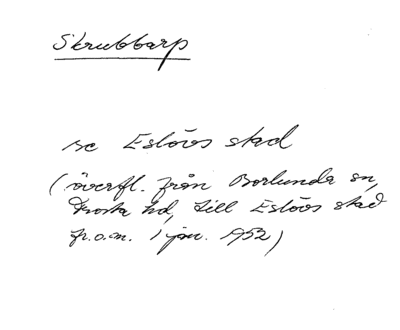 Skrubbarp
se Eslövs stad
(överfl. från Borlunda sn,
Frosta hd, till Eslövs stad
fr.o.m. 1 jan. 1952)